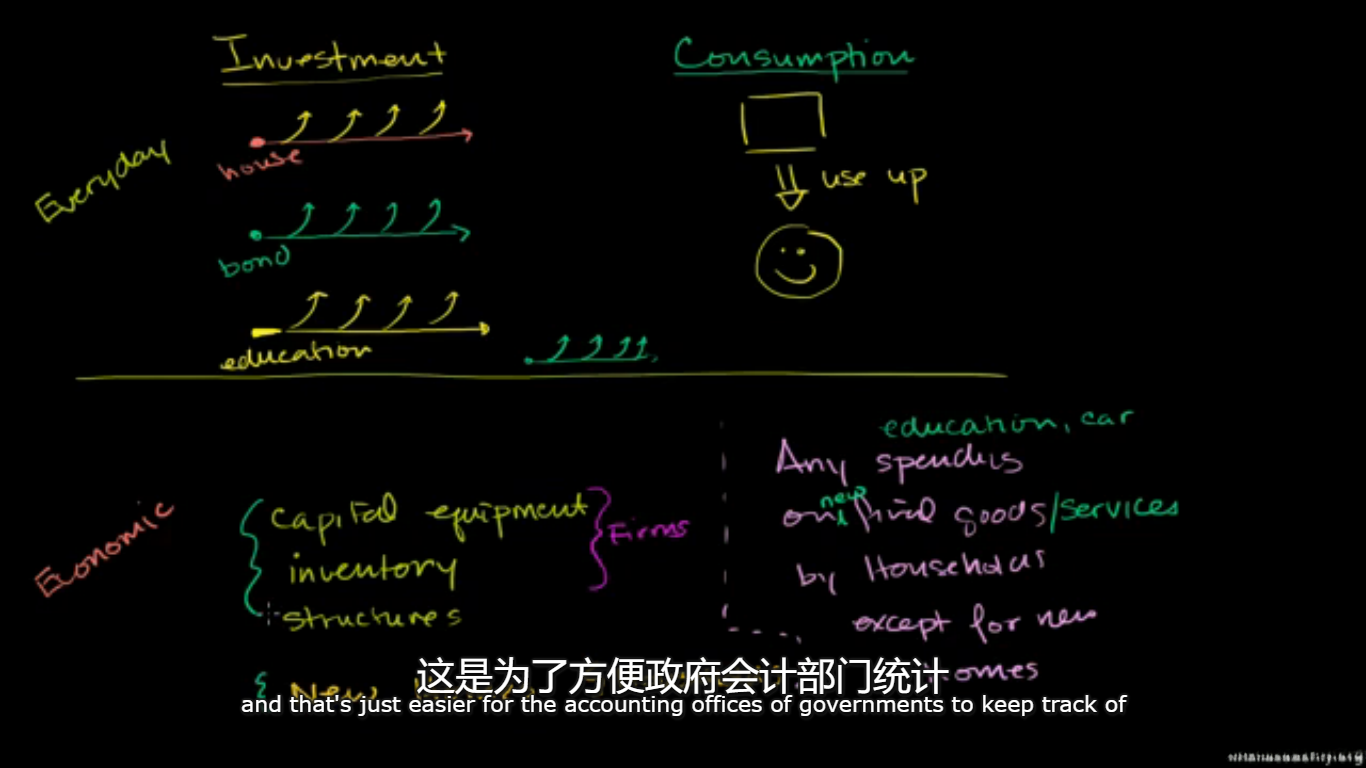 Investment
Consumption
Everyday
house
use up
bond
education
education, car
Any spending
on new final goods/services
by Households
except for new
homes
Economic
capital equipment
Firms
inventory
structures
New
这是为了方便政府会计部门统计
and that's just easier for the accounting offices of governments to keep track of